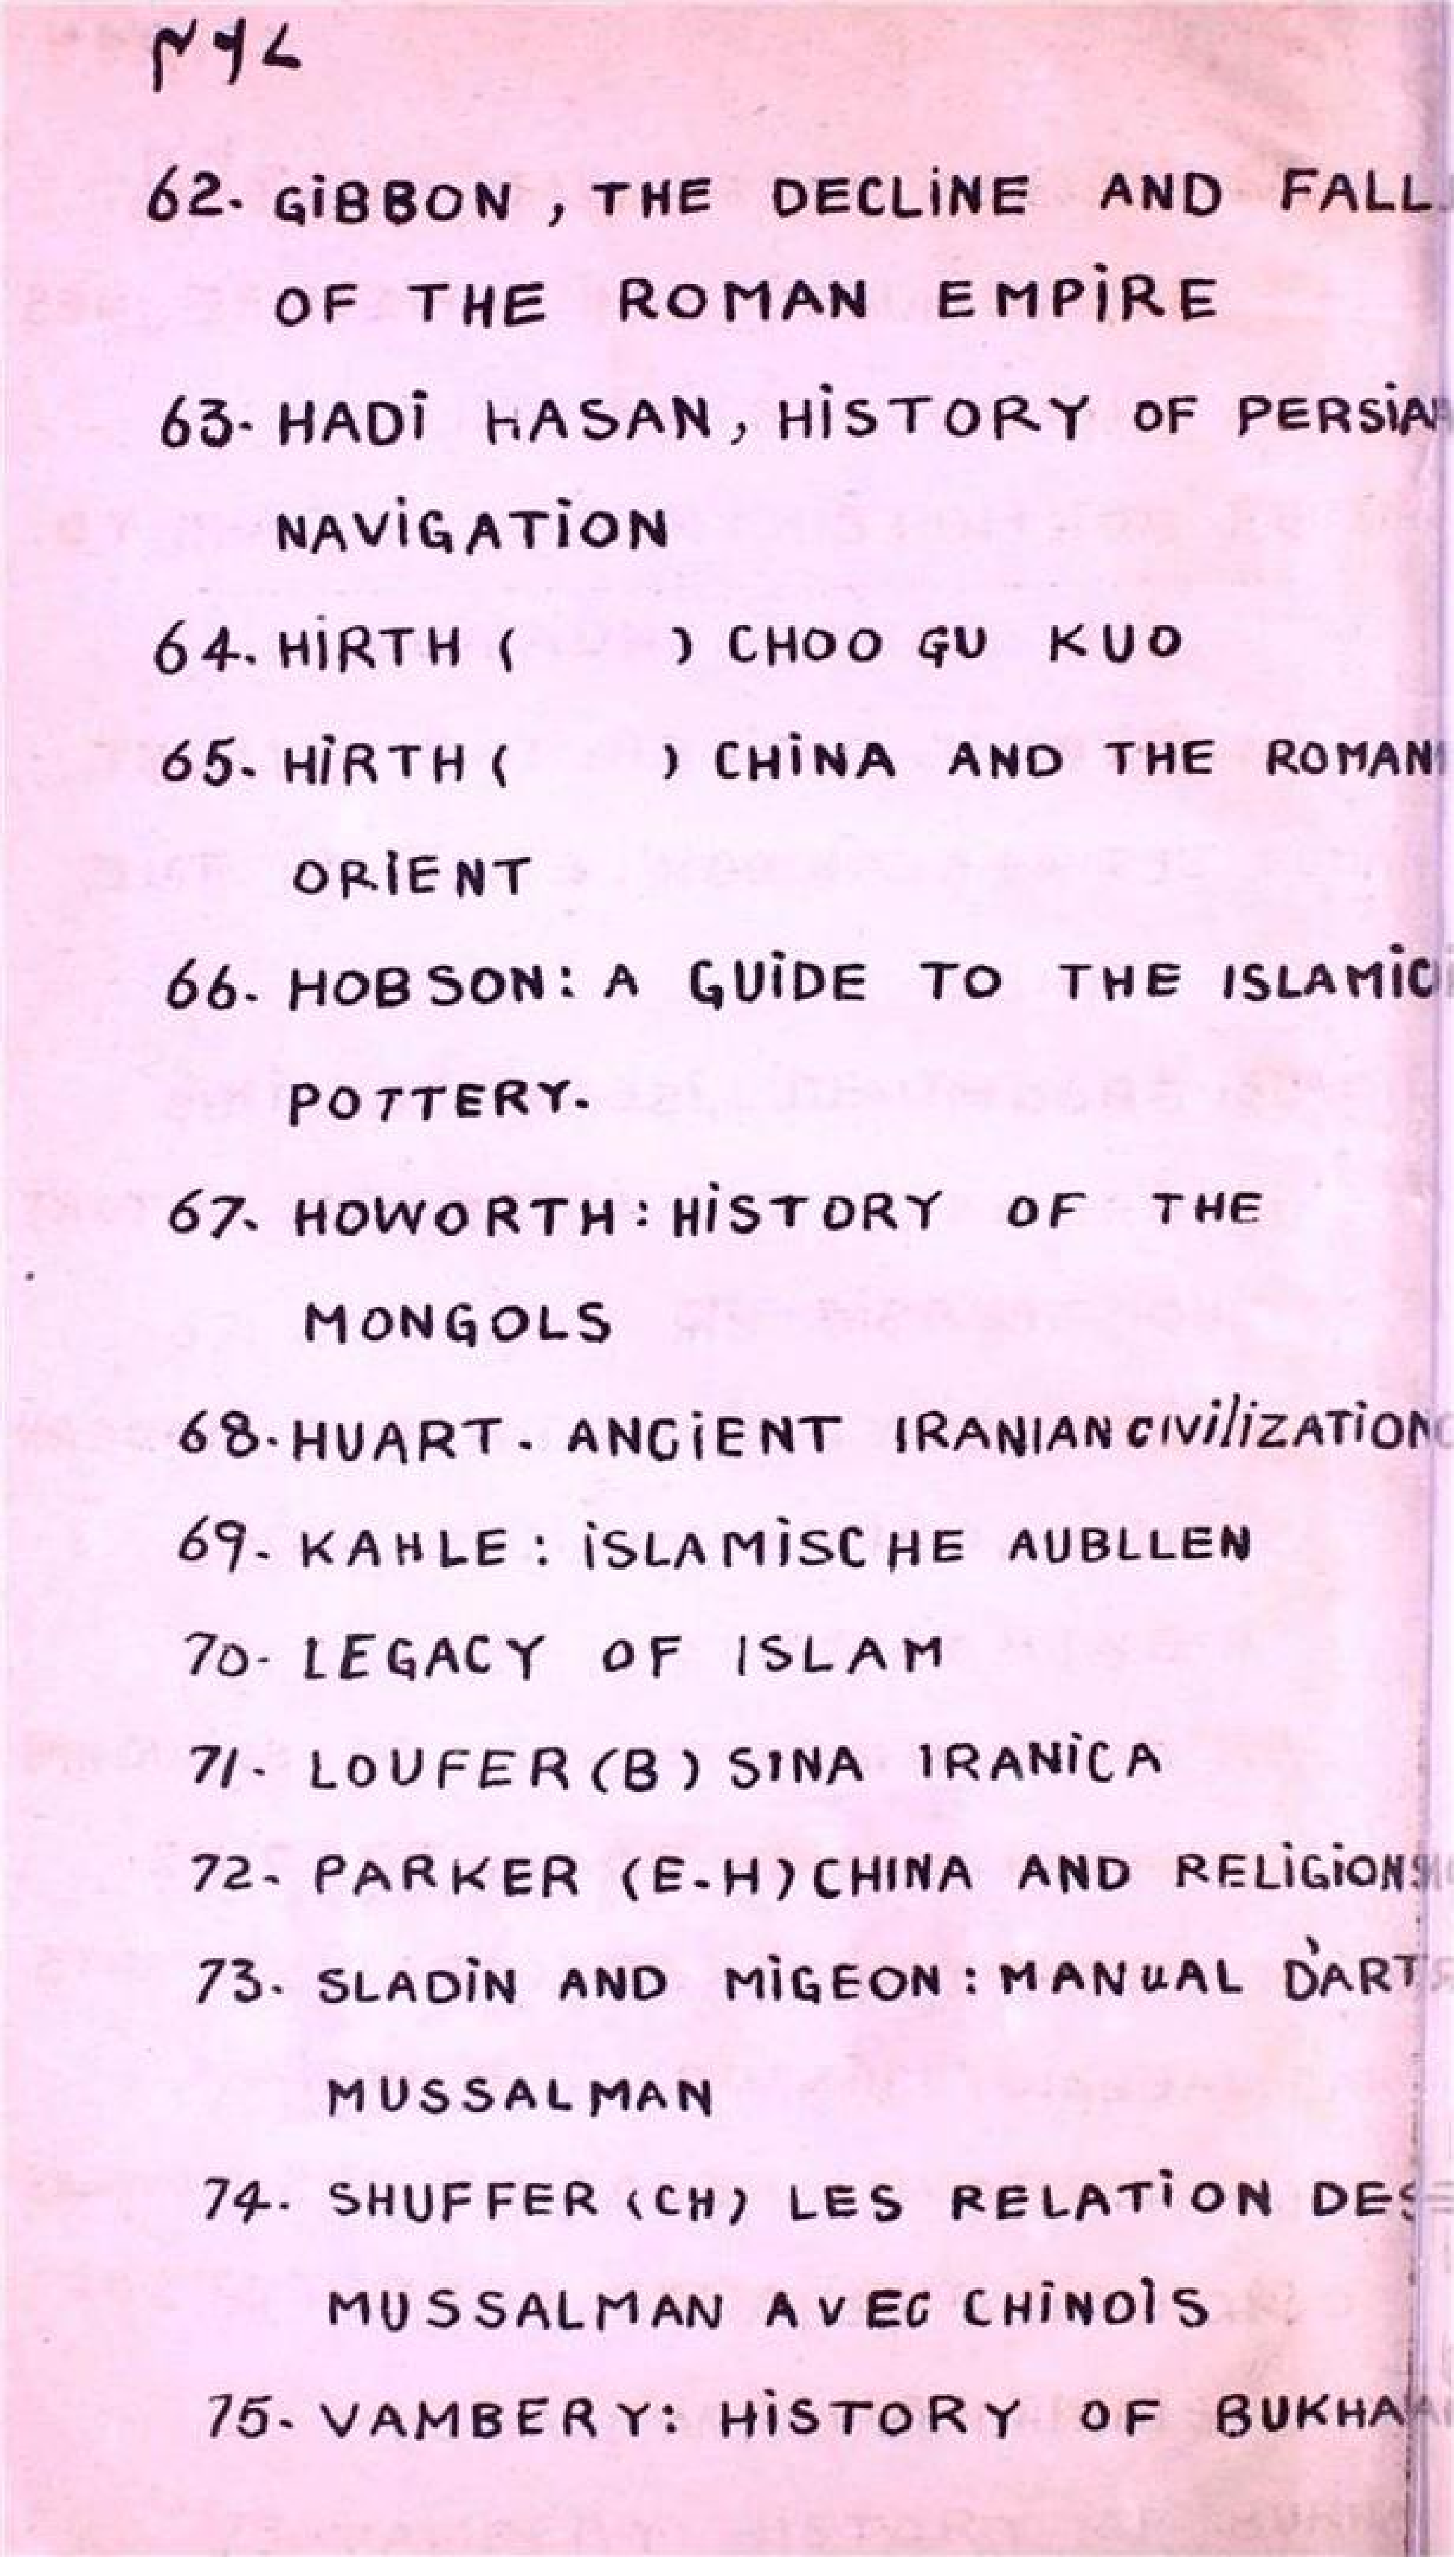 ۴۶۸
62. GiBBON, THE DECLiNE AND FALL
OF THE ROMAN EMPiRE
63. HADi HASAN, HiSTORY OF PERSiAN
NAViGATiON
64. HiRTH ( ) CHOO GU KUO
65. HiRTH ( ) CHiNA AND THE ROMAN
ORiENT
66. HOBSON: A GUiDE TO THE ISLAMiC
POTTERY.
67. HOWORTH: HiSTORY OF THE
MONGOLS
68. HUART. ANCiENT IRANIAN CIViliZATiON
69. KAHLE: iSLAMiSCHE AUBLLEN
70. LEGACY OF ISLAM
71. LOUFER (B) SINA IRANiCA
72. PARKER (E-H) CHINA AND RELiGiONS
73. SLADiN AND MiGEON: MANUAL D'ART
MUSSALMAN
74. SHUFFER (CH) LES RELATiON DES
MUSSALMAN AVEC CHiNOiS
75. VAMBERY: HiSTORY OF BUKHA